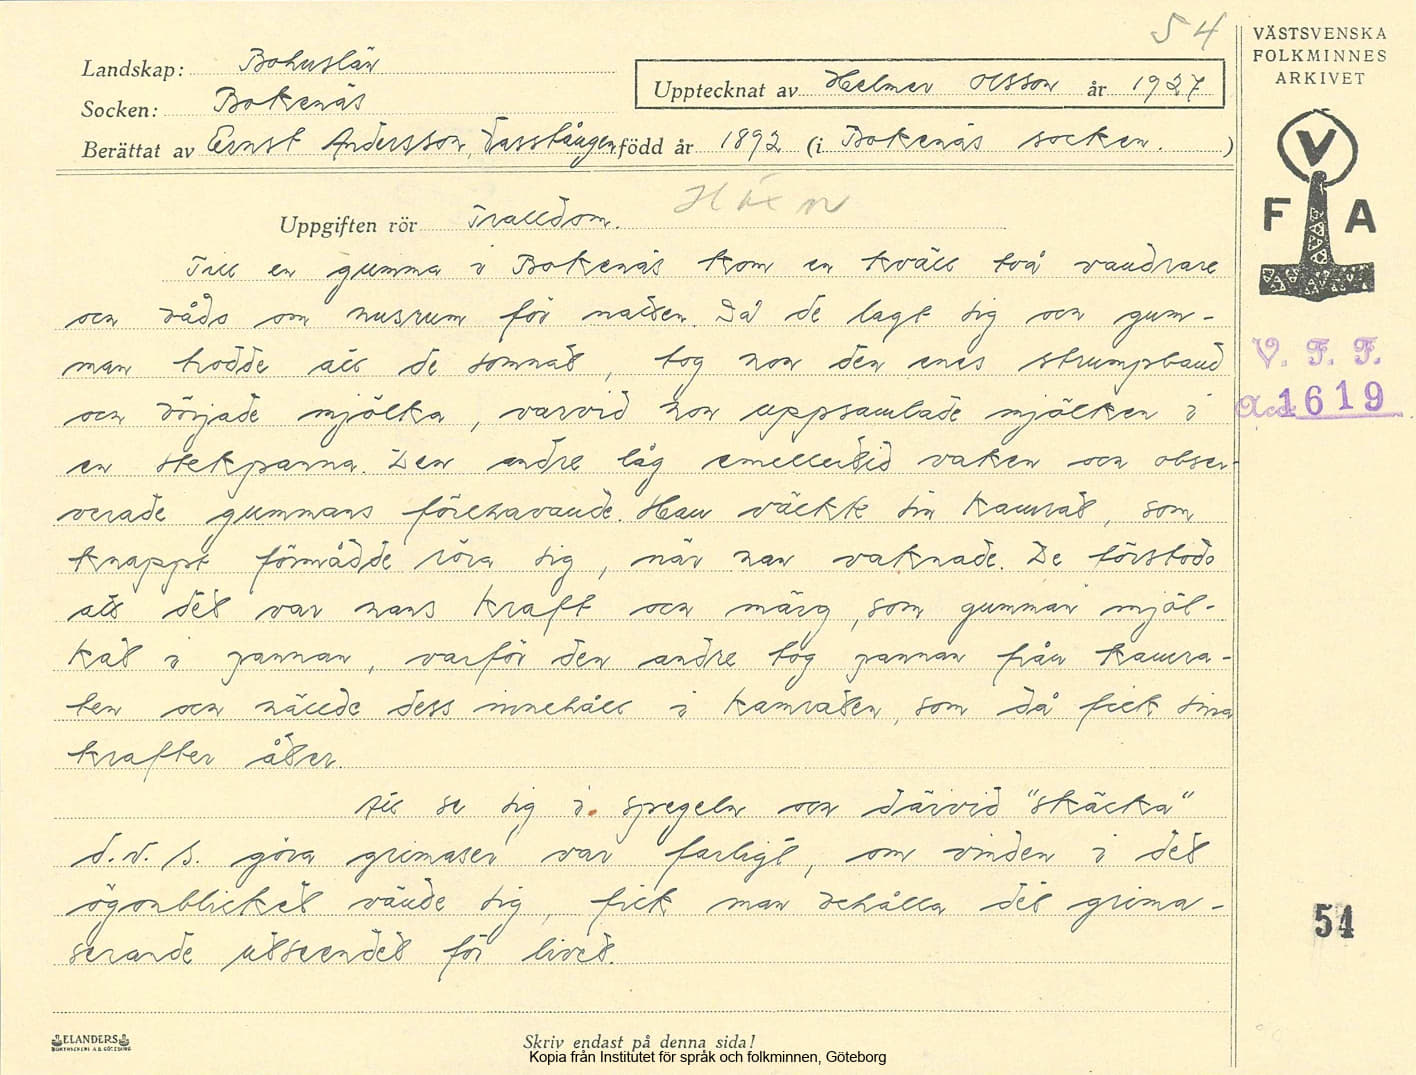 54
Landskap: Bohuslän
Socken: Bokenäs
Upptecknat av Helmer Olsson år 1927
Berättat av Ernst Andersson, född år 1892 (i Bokenäs socken. )
VÄSTSVENSKA
FOLKMINNES
ARKIVET
V
F A
Uppgiften rör Trolldom. Häxn
Till en gumma i Bokenäs kom en kväll två vandrare
och båds om husrum för natten. Då de lagt sig och gum-
man trodde att de somnat, tog hon den enes strumpband
och började mjölka, varvid hon uppsamlade mjölken i
en stekpanna. Den andre låg emellertid vaken och obser-
verade gummans förehavande. Han väckte sin kamrat, som
knappt förmådde röra sig, när han vaknade. De förstods
att det var hans kraft och märg, som gumman mjöl-
kat i pannan, varför den andre tog pannan från kamra-
ten och hällde dess innehåll i kamraten, som då fick sina
krafter åter.
Att se sig i spegeln och därvid "skäcka"
d.v.s. göra grimaser var farligt, om vinden i det
ögonblicket vände sig, fick man behålla det grima-
serande utseendet för livet.
V. F. F.
Acc 1619
54
ELANDERS
BOKTRYCKERI A.B. GÖTEBORG
Skriv endast på denna sida!
Kopia från Institutet för språk och folkminnen, Göteborg